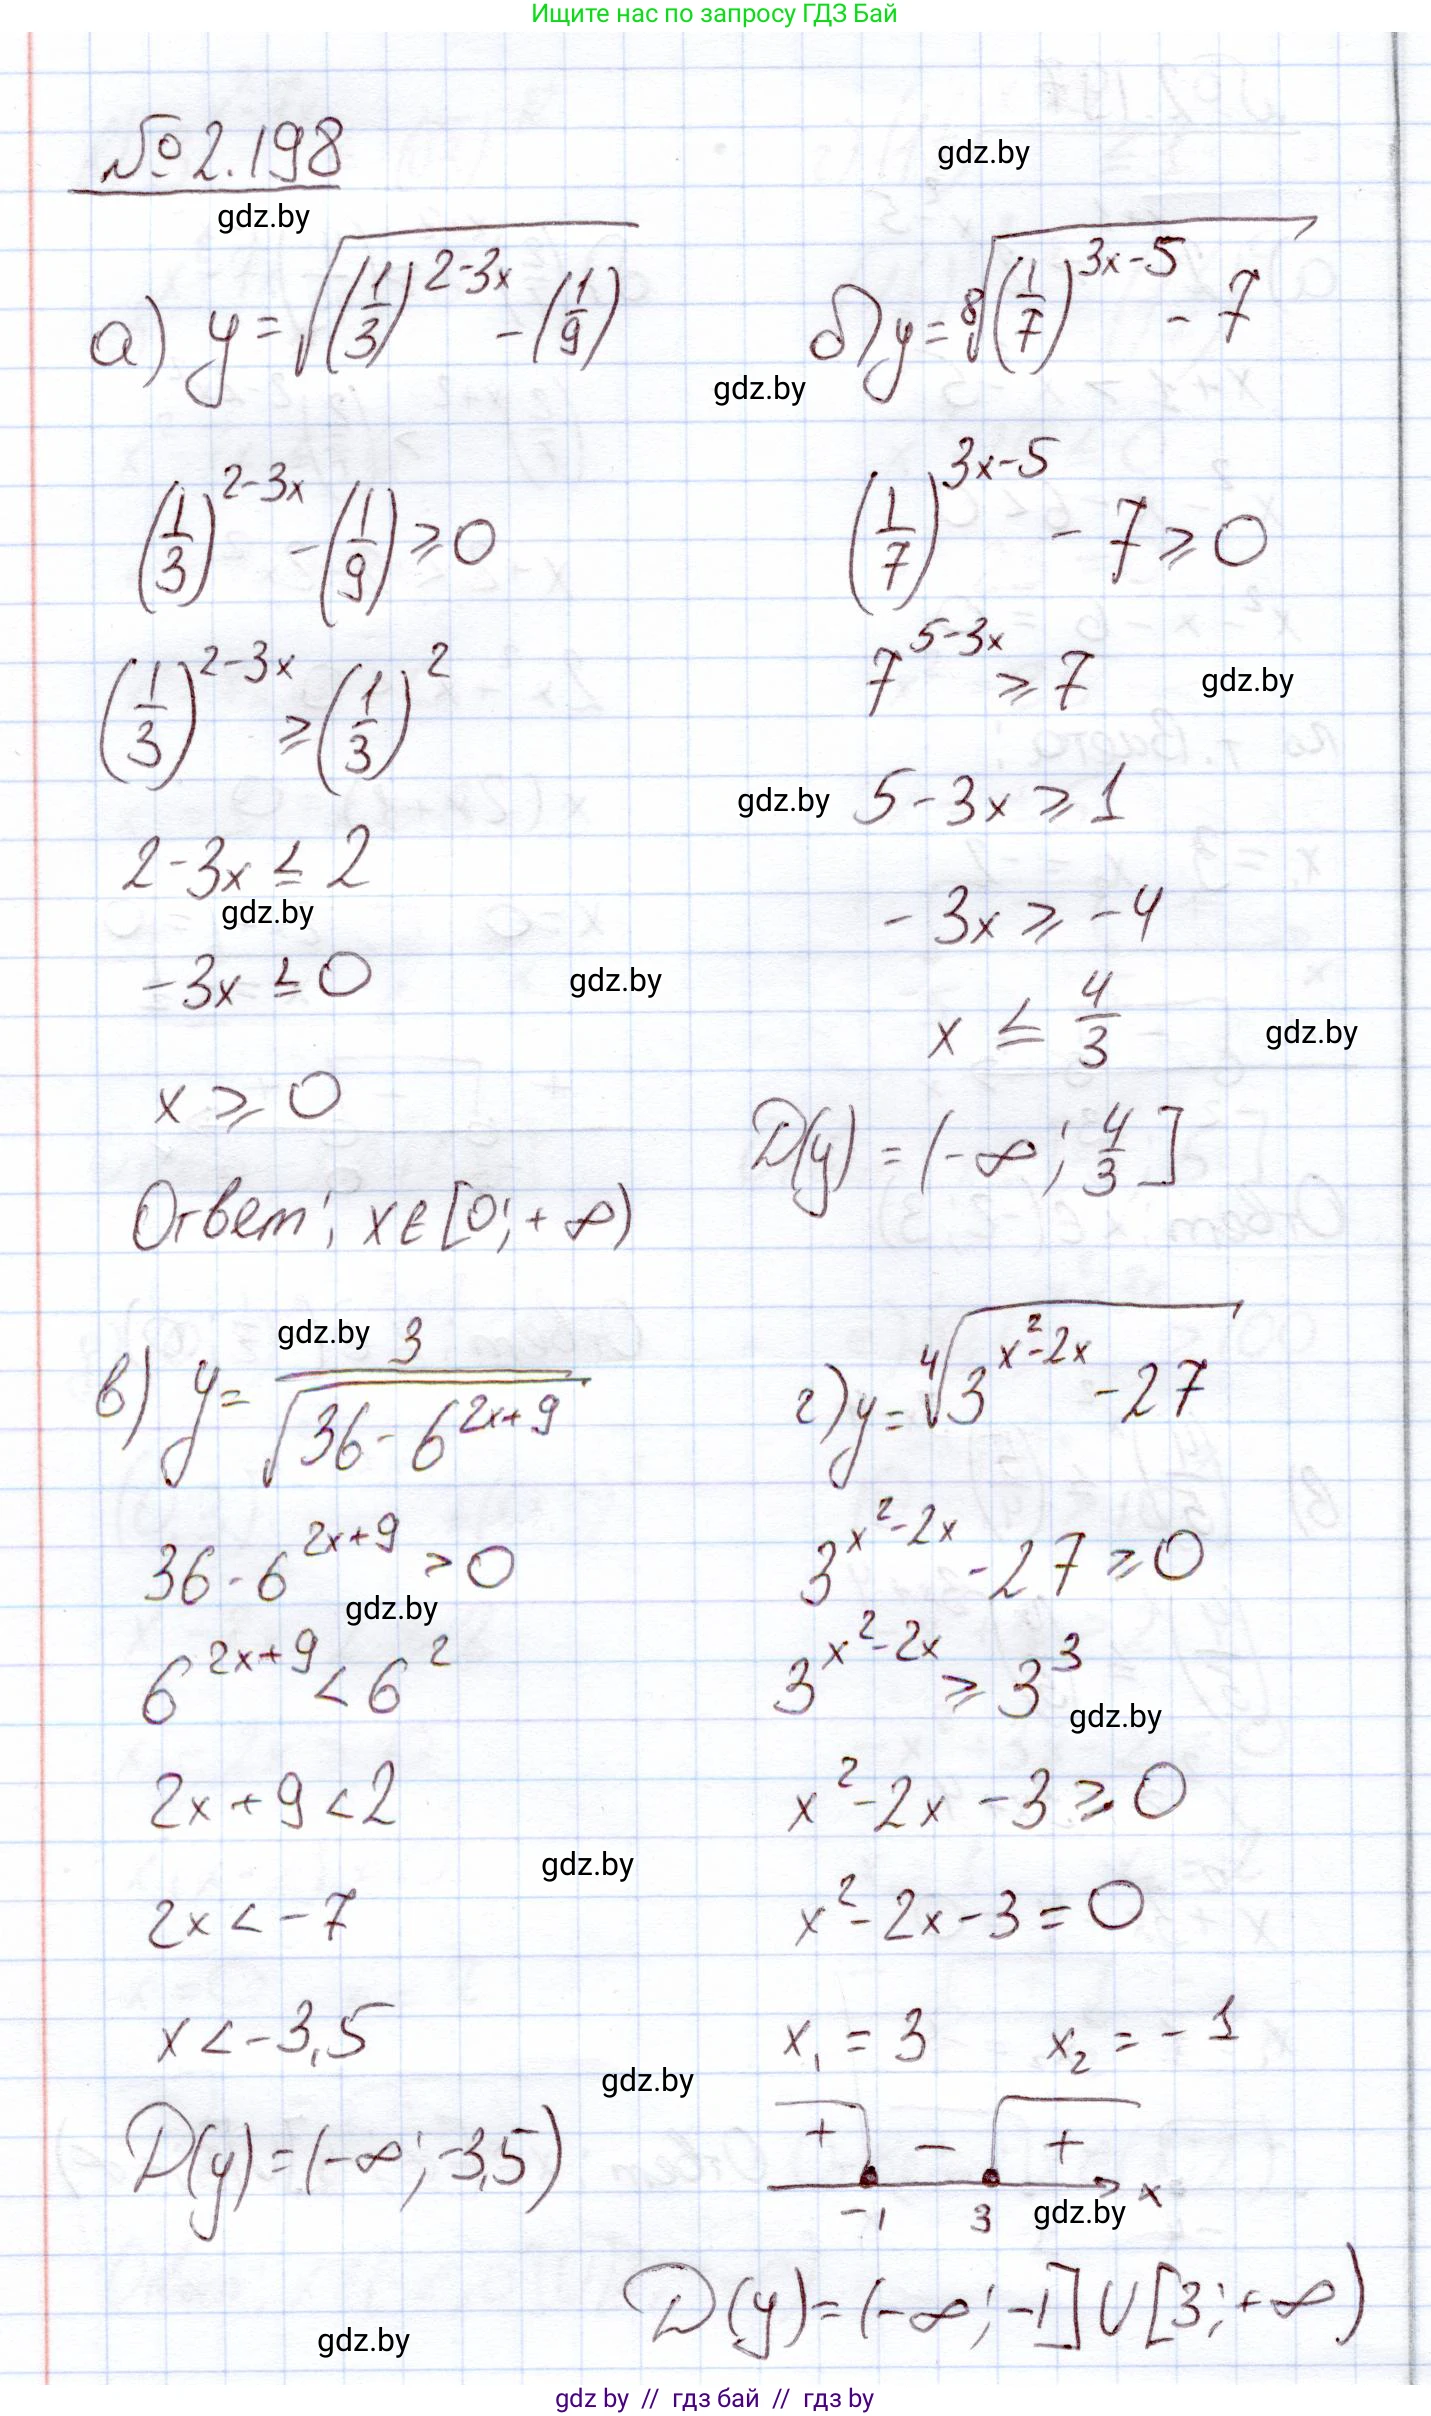 Ищите нас по запросу ГДЗ Бай
№ 2.198
gdz.by
gdz.by
а) y = √((1/3)^(2-3x) - (1/9))
(1/3)^(2-3x) - (1/9) ⩾ 0
(1/3)^(2-3x) ⩾ (1/3)^2
2-3x ≤ 2
gdz.by
-3x ≤ 0
gdz.by
x ⩾ 0
Ответ: x∈[0; +∞)
б) y = ⁸√((1/7)^(3x-5) - 7)
gdz.by
(1/7)^(3x-5) - 7 ⩾ 0
7^(5-3x) ⩾ 7
gdz.by
gdz.by
5-3x ⩾ 1
-3x ⩾ -4
x ≤ 4/3
gdz.by
D(y) = (-∞; 4/3]
gdz.by
в) y = 3/√(36-6^(2x+9))
36-6^(2x+9) > 0
gdz.by
6^(2x+9) < 6^2
2x+9 < 2
gdz.by
2x < -7
x < -3,5
gdz.by
D(y) = (-∞; -3,5)
г) y = ⁴√(3^(x²-2x) - 27)
3^(x²-2x) - 27 ⩾ 0
3^(x²-2x) ⩾ 3^3
gdz.by
x²-2x-3 ⩾ 0
x²-2x-3 = 0
x₁ = 3 x₂ = -1
+ - +
-1 3 x
gdz.by
D(y) = (-∞; -1] U [3; +∞)
gdz.by
gdz by // гдз бай // гдз by